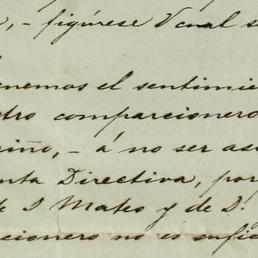 , - figúrese V cual s
enemos el sentimie
tro comparcionero
riño, - á no ser as
nta Directiva, por
de S Mateo y de D.
cionero no es sufic